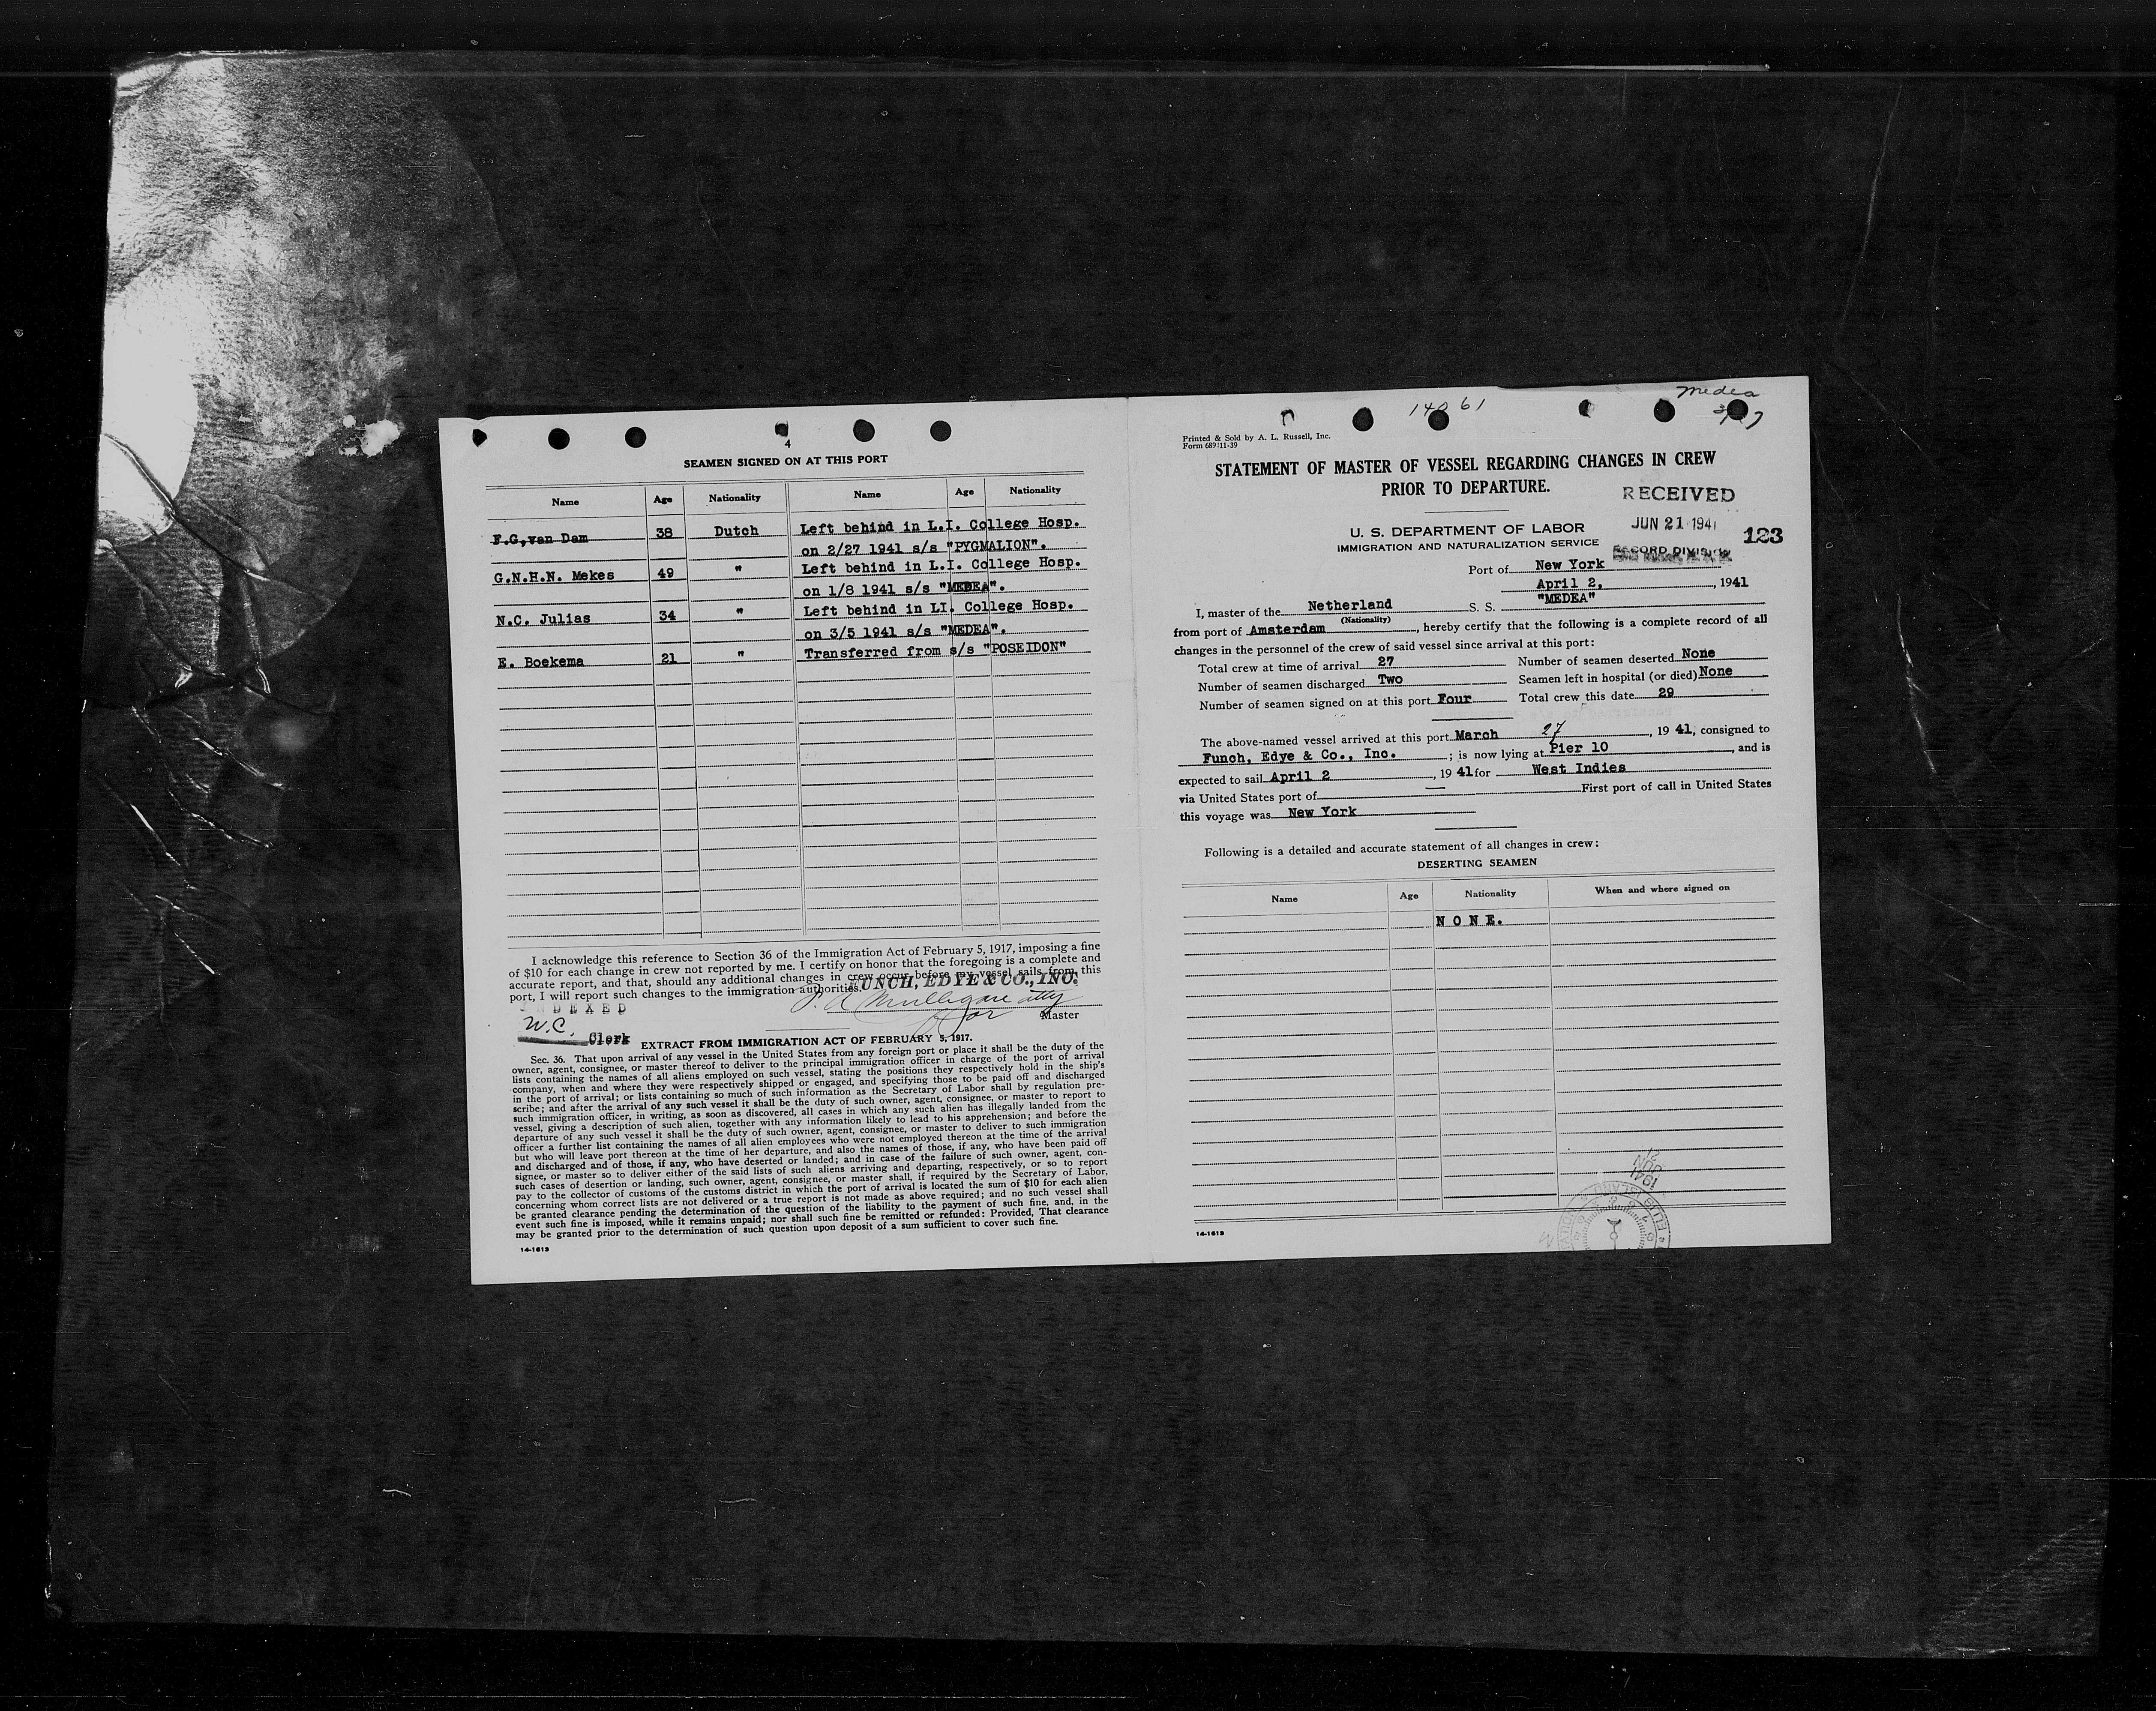 4
SEAMEN SIGNED ON AT THIS PORT
Name Age Nationality Name Age Nationality
F.G,van Dam 38 Dutch Left behind in L.I. College Hosp.
on 2/27 1941 s/s "PYGMALION".
G.N.H.N. Mekes 49 " Left behind in L.I. College Hosp.
on 1/8 1941 s/s "MEDEA".
N.C. Julias 34 " Left behind in LI. College Hosp.
on 3/5 1941 s/s "MEDEA".
E. Boekema 21 " Transferred from s/s "POSEIDON"
I acknowledge this reference to Section 36 of the Immigration Act of February 5, 1917, imposing a fine
of $10 for each change in crew not reported by me. I certify on honor that the foregoing is a complete and
accurate report, and that, should any additional changes in crew occur before my vessel sails from this
port, I will report such changes to the immigration authorities.
UNCH, EDYE & CO., INC.
Mulligan atty
for
Master
DEXED
W.C. Clerk
EXTRACT FROM IMMIGRATION ACT OF FEBRUARY 5, 1917.
Sec. 36. That upon arrival of any vessel in the United States from any foreign port or place it shall be the duty of the
owner, agent, consignee, or master thereof to deliver to the principal immigration officer in charge of the port of arrival
lists containing the names of all aliens employed on such vessel, stating the positions they respectively hold in the ship's
company, when and where they were respectively shipped or engaged, and specifying those to be paid off and discharged
in the port of arrival; or lists containing so much of such information as the Secretary of Labor shall by regulation pre-
scribe; and after the arrival of any such vessel it shall be the duty of such owner, agent, consignee, or master to report to
such immigration officer, in writing, as soon as discovered, all cases in which any such alien has illegally landed from the
vessel, giving a description of such alien, together with any information likely to lead to his apprehension; and before the
departure of any such vessel it shall be the duty of such owner, agent, consignee, or master to deliver to such immigration
officer a further list containing the names of all alien employees who were not employed thereon at the time of the arrival
but who will leave port thereon at the time of her departure, and also the names of those, if any, who have been paid off
and discharged and of those, if any, who have deserted or landed; and in case of the failure of such owner, agent, con-
signee, or master so to deliver either of the said lists of such aliens arriving and departing, respectively, or so to report
such cases of desertion or landing, such owner, agent, consignee, or master shall, if required by the Secretary of Labor,
pay to the collector of customs of the customs district in which the port of arrival is located the sum of $10 for each alien
concerning whom correct lists are not delivered or a true report is not made as above required; and no such vessel shall
be granted clearance pending the determination of the question of the liability to the payment of such fine, and, in the
event such fine is imposed, while it remains unpaid; nor shall such fine be remitted or refunded: Provided, That clearance
may be granted prior to the determination of such question upon deposit of a sum sufficient to cover such fine.
14-1613
Medea
Printed & Sold by A. L. Russell, Inc.
Form 689:11-39
STATEMENT OF MASTER OF VESSEL REGARDING CHANGES IN CREW
PRIOR TO DEPARTURE.
RECEIVED
JUN 21 1941
RECORD DIVISION
123
U. S. DEPARTMENT OF LABOR
IMMIGRATION AND NATURALIZATION SERVICE
Port of New York
April 2, , 1941
I, master of the Netherland S. S. "MEDEA"
(Nationality)
from port of Amsterdam , hereby certify that the following is a complete record of all
changes in the personnel of the crew of said vessel since arrival at this port:
Total crew at time of arrival 27 Number of seamen deserted None
Number of seamen discharged Two Seamen left in hospital (or died) None
Number of seamen signed on at this port Four Total crew this date 29
The above-named vessel arrived at this port March 27 , 19 41, consigned to
Funch, Edye & Co., Inc. ; is now lying at Pier 10 , and is
expected to sail April 2 , 19 41 for West Indies
via United States port of — First port of call in United States
this voyage was New York
Following is a detailed and accurate statement of all changes in crew:
DESERTING SEAMEN
Name Age Nationality When and where signed on
N O N E.
1941
JUN
21
ELLIS ISLAND
14-1613